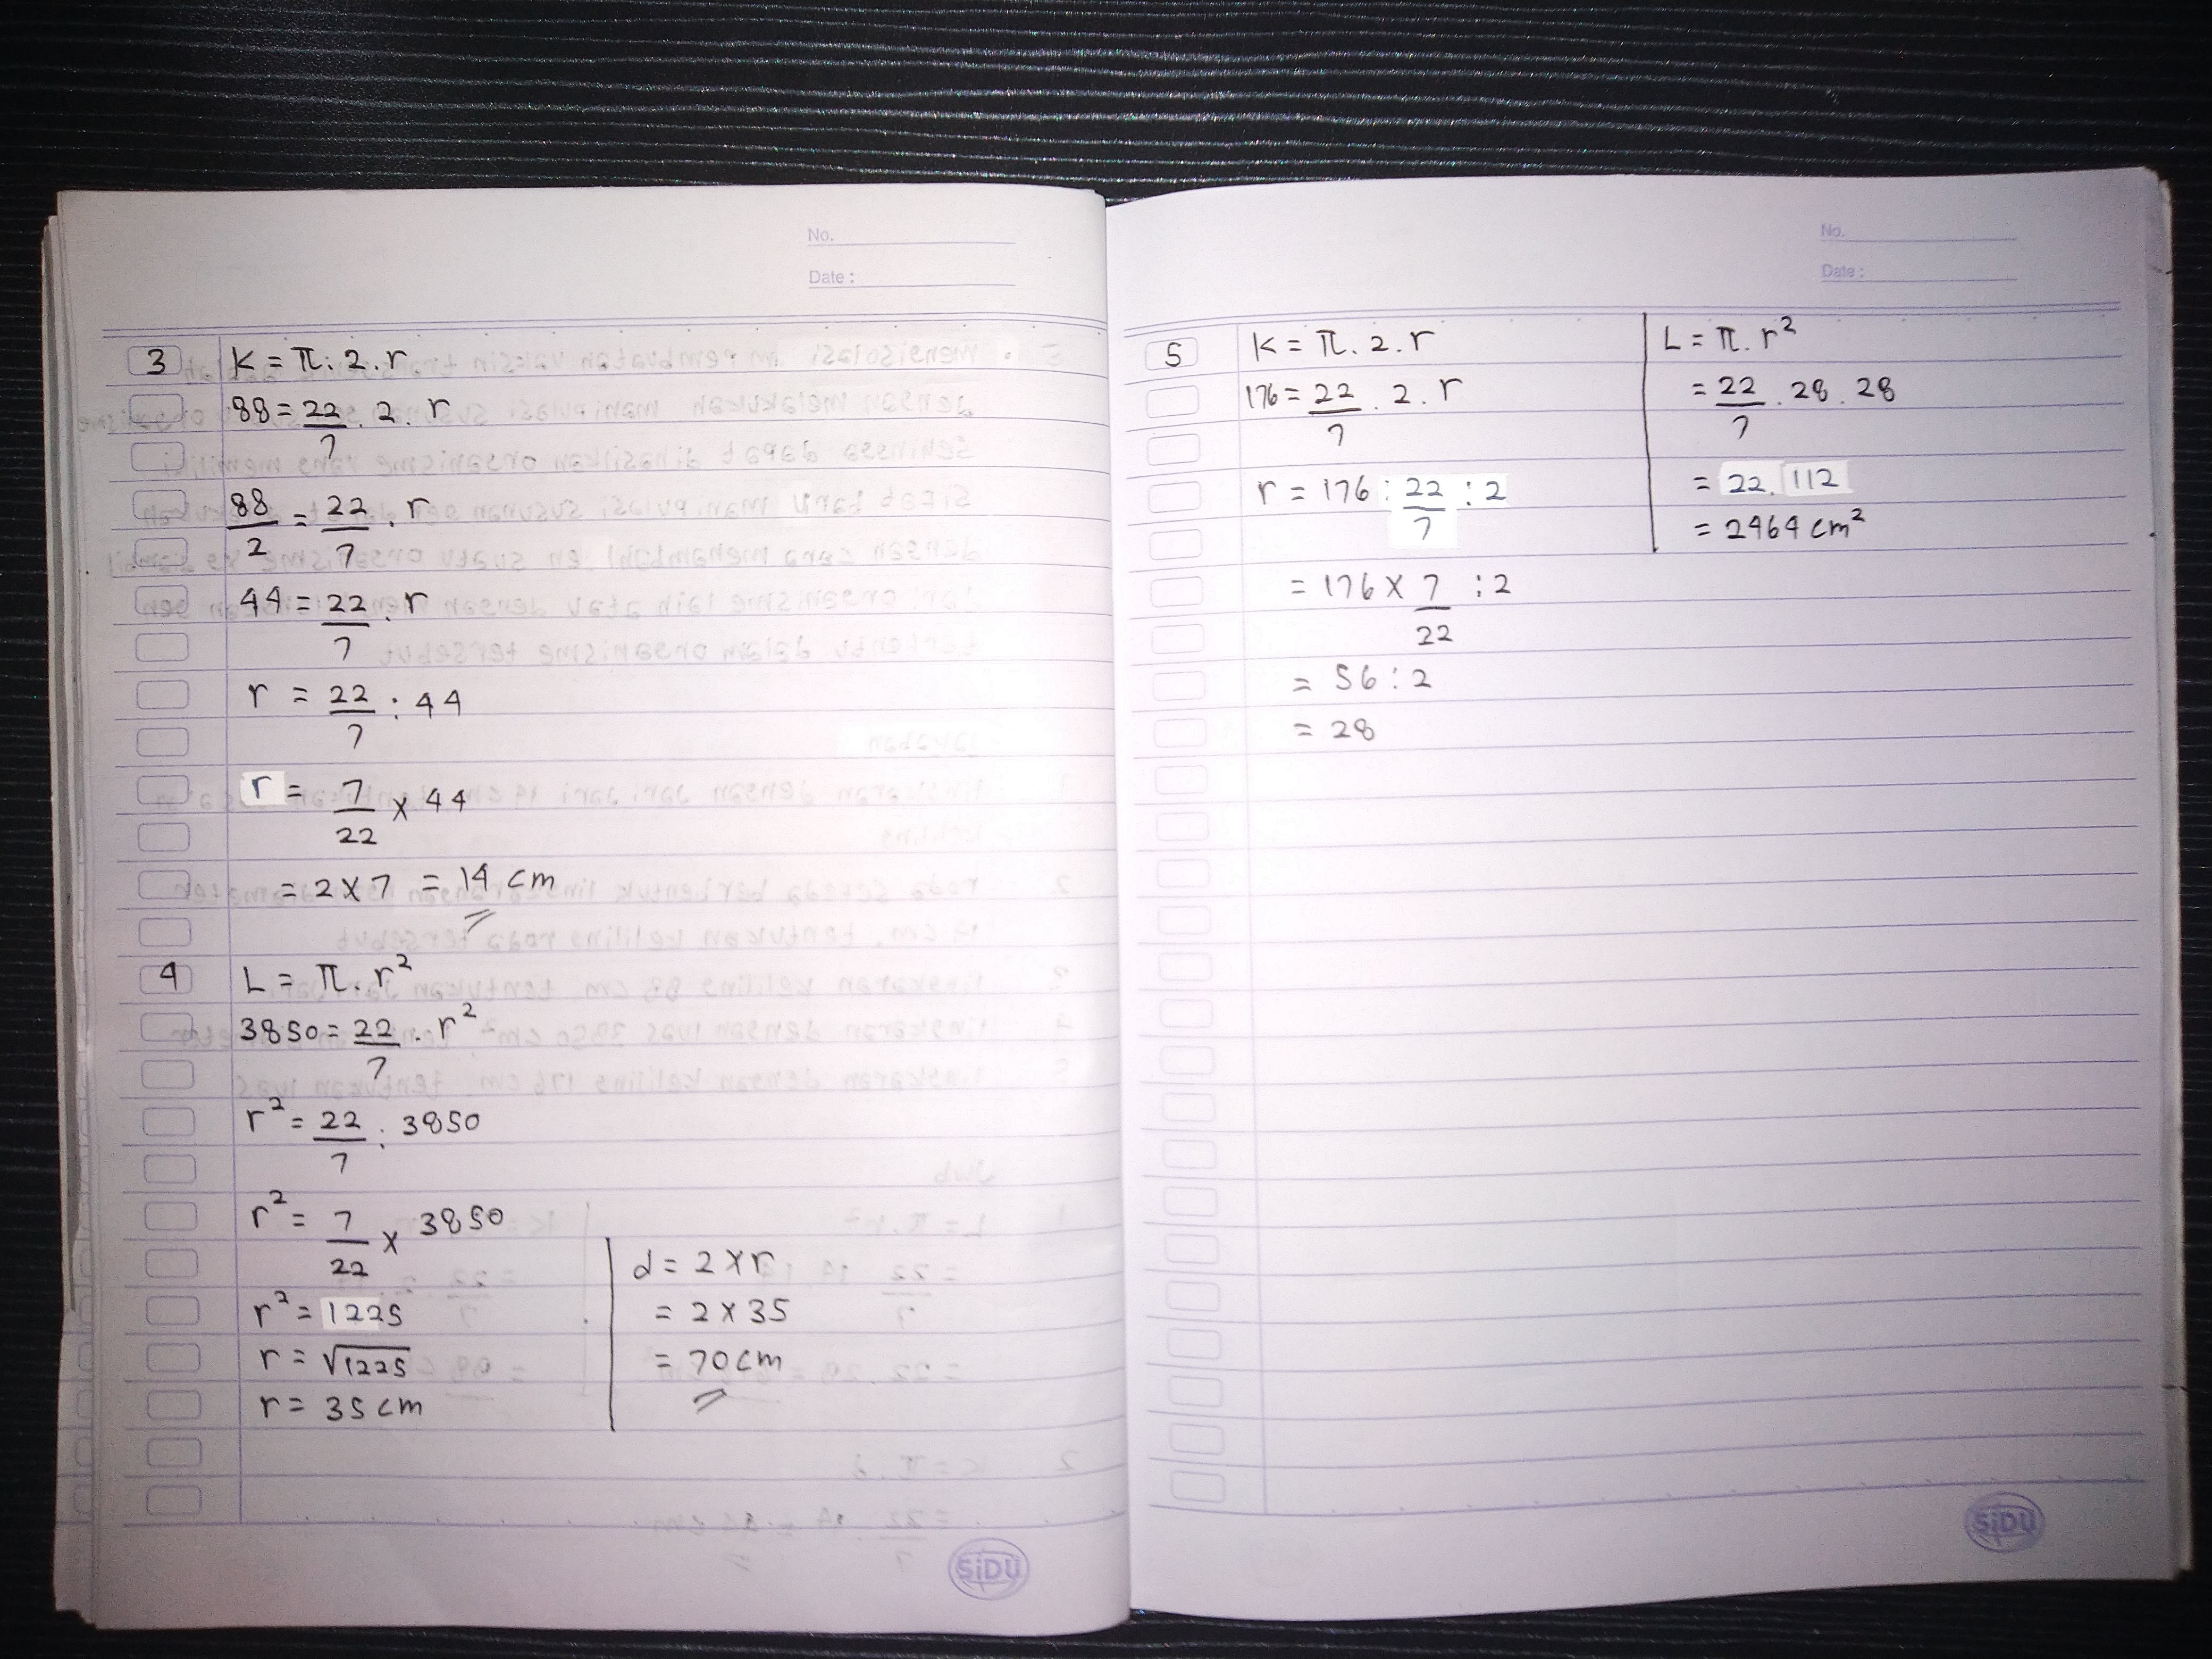 No.
Date :
3 K = π. 2. r
88 = 22/7 . 2. r
88/2 = 22/7 . r
44 = 22/7 . r
r = 22/7 : 44
r = 7/22 x 44
= 2 x 7 = 14 cm
4 L = π. r²
3850 = 22/7 . r²
r² = 22/7 : 3850
r² = 7/22 x 3850
r² = 1225
r = √1225
r = 35 cm
d = 2 x r
= 2 x 35
= 70 cm
SiDU
No.
Date :
5 K = π. 2. r
176 = 22/7 . 2. r
r = 176 : 22/7 : 2
= 176 x 7/22 : 2
= 56 : 2
= 28
L = π. r²
= 22/7 . 28 . 28
= 22. 112
= 2464 cm²
SiDU